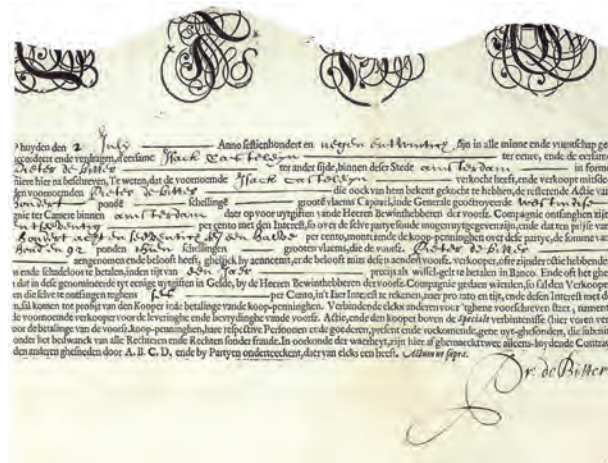 huyden den 2 July Anno sestienhondert en negen en twintig, sijn in alle minne ende vrientschap ge
accordeert ende verdragen, d'eersame Isack Casteleyn ter eenre, ende de eersame
Pieter de Bitter ter ander sijde, binnen deser Stede amsterdam in form
niere hier na beschreven, Te weten, dat de voornoemde Isack casteleyn verkocht heeft, ende verkoopt mits de
den voornoemden Pieter de bitter die oock van hem bekent gekocht te hebben, de resterende Actie van
hondert ponde schellinge grooten vlaems Capitael, inde Generale geoctroyeerde westindise
gnie ter Camere binnen amsterdam daer op voor uytgiften van de Heeren Bewinthebberen der voorsz. Compagnie ontfanghen zijn
per cento met den Interest, so over de selve partye sonde mogen uytgegeven zijn, ende dat ten prijse van
hondert acht en een halve per cento, monterende de koop-penninghen over dese partye, de somme van
hondert 92 ponden thien schellingen grooten vlaems, die de voorsz. Pieter de bitter
aengenomen ende belooft heeft, ghelijck hy aenneemt, ende belooft mits desen aen des voorsz. verkooper, ofte zijnder actie hebbende
ende schadeloos te betalen, inden tijt van een Jaer precijs als wissel-gelt te betalen in Banco. Ende oft het ghe
dat in dese genomineerde tyt eenige uytgiften in Gelde, by de Heeren Bewinthebberen der voorsz. Compagnie gedaen wierden, so sal den Verkooper
en die selve te ontfangen teghens per Cento, in't Jaer Interest te rekenen, naer pro rato en tijt, ende desen Interest met de
sal komen tot profijt van den Kooper inde betalinge van de koop-penninghen. Verbindende elckx anderen voor 'tghene voorschreven staet, nament
de voornoemde verkooper voor de leveringhe ende bevrydinghe vande voorsz. Actie, ende den kooper boven de speciale verbintenisse hier voren ver
oor de betalinge van de voorsz. koop-penninghen, hare respective Persoonen ende goederen, present ende toekomende, gene uyt-ghesondert, die submit
onder het bedwanck van alle Rechteren ende Rechten sonder fraude. In oorkonde der waerheyt, zijn hier af ghemaeckt twee alleens-luydende Contrac
den anderen ghesneden door A. B. C. D. ende by Partyen onderteeckent, daer van elcks een heeft. Actum ut supra.
Pr. de Bitter